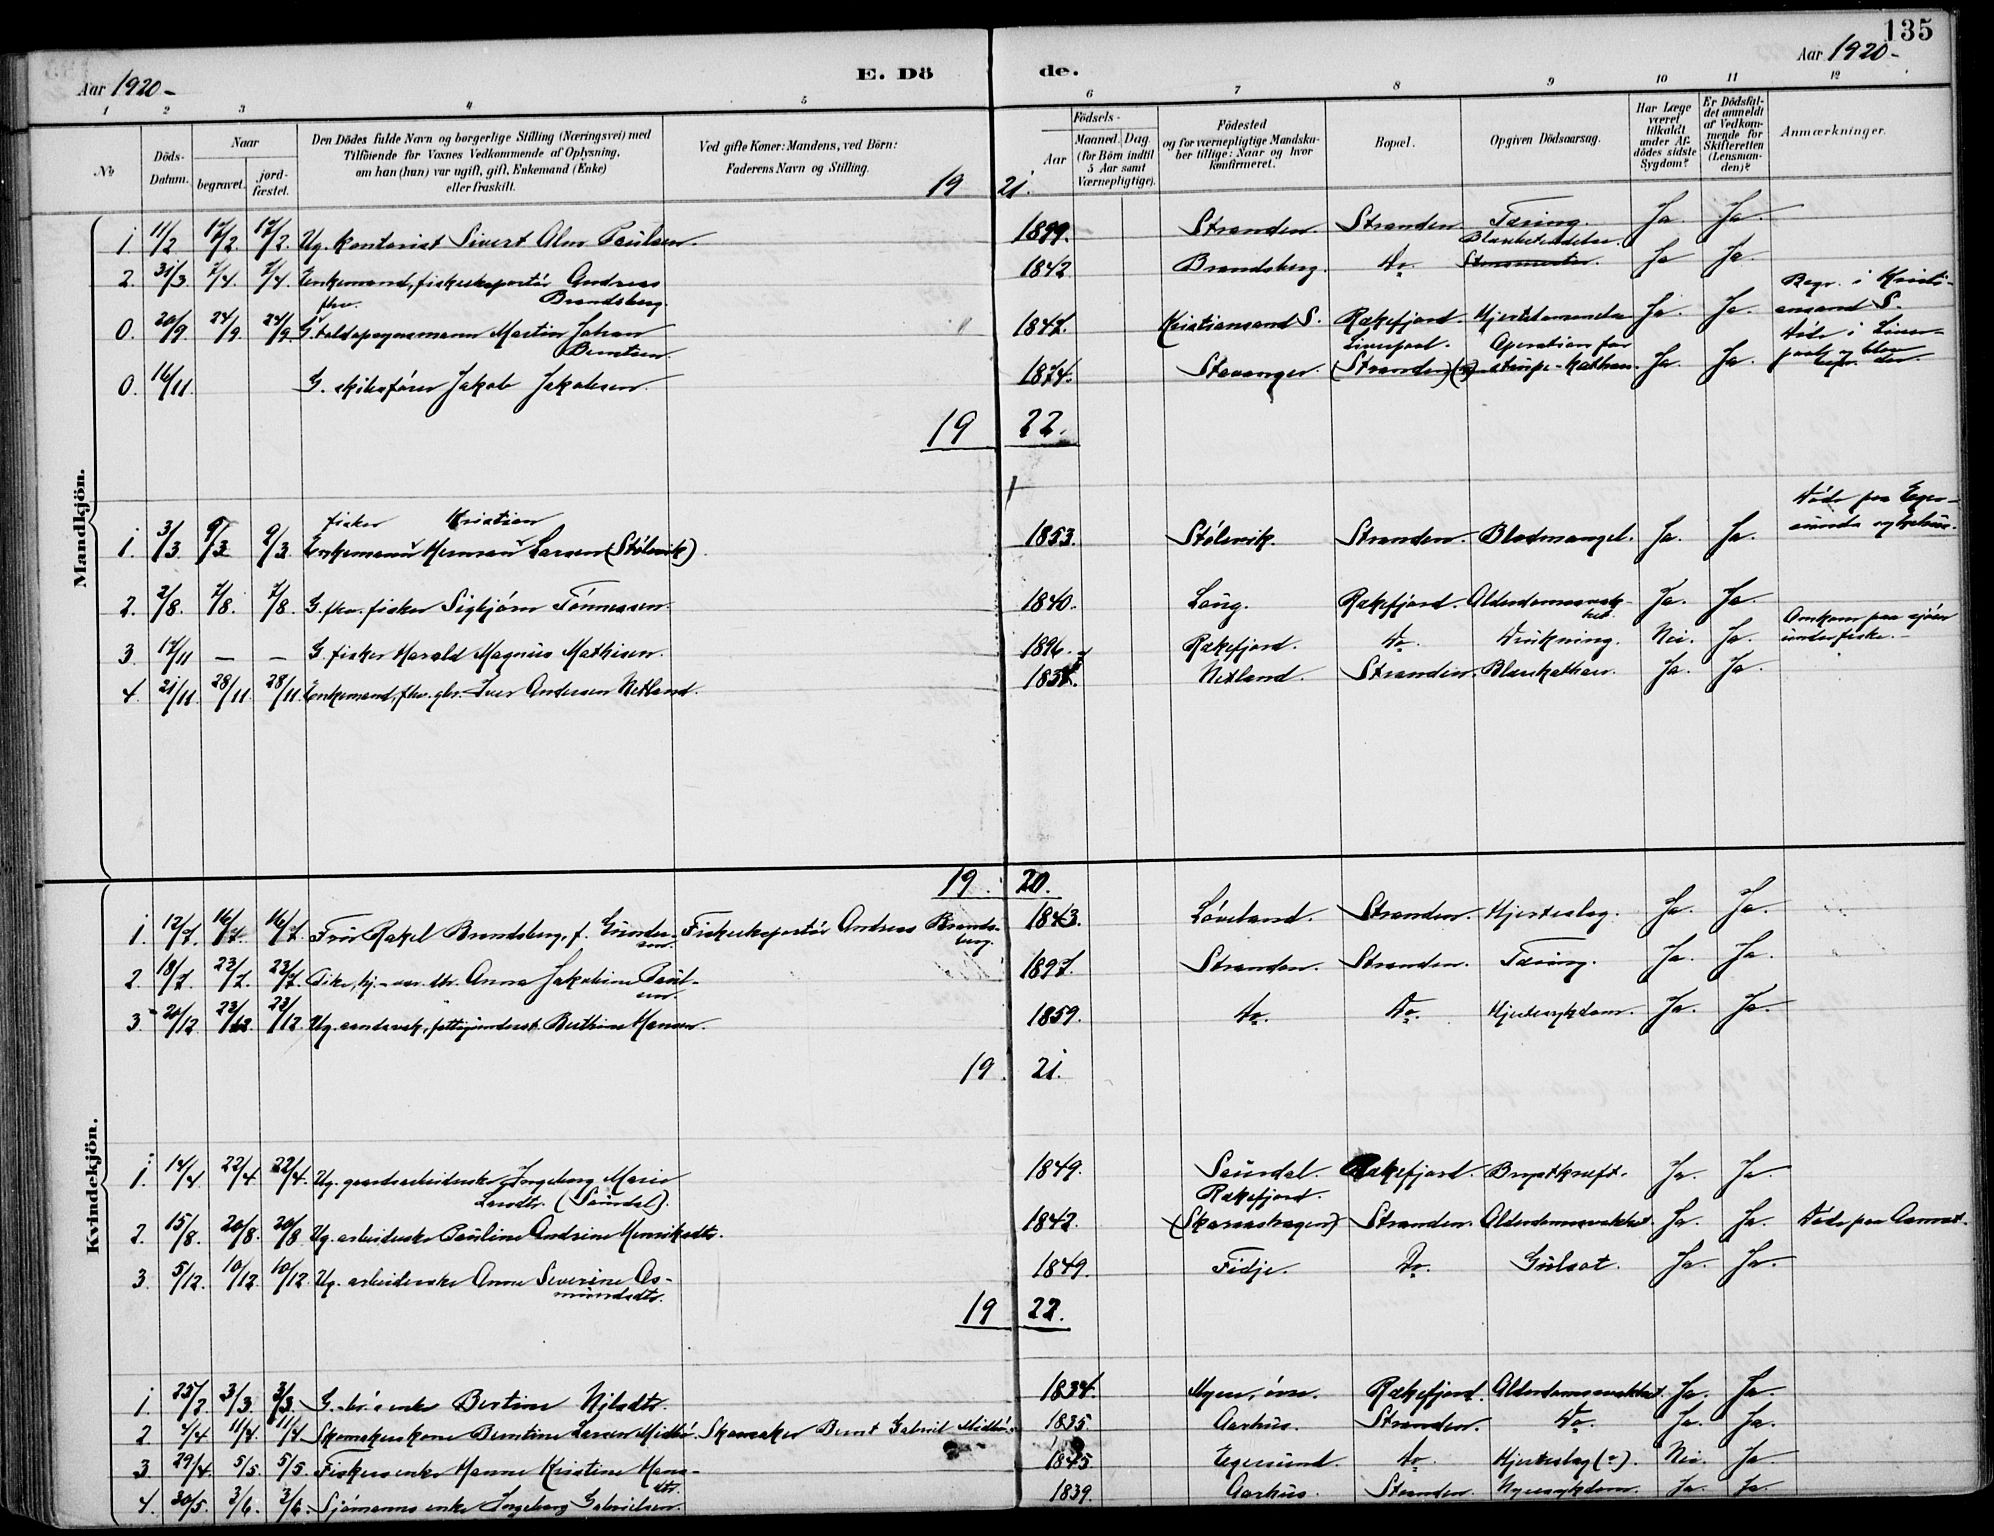 135
Aar 1920-
E. Dö
de.
Aar 1920-
1 2 3 4 5 6 7 8 9 10 11 12
№
Döds-Datum.
Naar
begravet.
jord-fæstet.
Den Dödes fulde Navn og borgerlige Stilling (Næringsvei) med
Tilföiende for Voxnes Vedkommende af Oplysning,
om han (hun) var ugift, gift, Enkemand (Enke)
eller fraskilt.
Ved gifte Koner: Mandens, ved Börn:
Faderens Navn og Stilling.
Födsels-
Aar
Maaned. Dag.
(for Börn indtil
5 Aar samt
Værnepligtige).
Födested
og for værnepligtige Mandska-
ber tillige: Naar og hvor
konfirmeret.
Bopæl.
Opgiven Dödsaarsag.
Har Læge
været
tilkaldt
under Af-
dödes sidste
Sygdom?
Er Dödsfal-
det anmeldt
af Vedkom-
mende for
Skifteretten
(Lensman-
den)?
Anmærkninger.
Mandkjön.
19 21.
1. 11/2 17/2. 17/2. Ug. kontorist Sivert Alm Paulsen. 1899. Stranden Stranden Tæring. Ja. Ja.
2. 31/3 7/4. 7/4. Enkemand, fiskeeksportör Andreas Brandsberg. 1842 Brandsberg. Do. Blærebetændelse. Ja Ja.
0. 20/9. 24/9. 24/9 G. fhv. toldopsynsmann Martin Johan Berntsen. 1847. Kristiansand S. Rækefjord. Hjertelammelse Ja. Ja. Begr. i Kristi-
ansand S.
0. 16/11. G. skibsförer Jakob Jakobsen. 1874. Stavanger. Liverpool. (Stranden) Operation for strupe-kathar. Ja. Ja. Döde i Liver-
pool og blev
begr. der.
19 22.
1. 3/3 9/3 9/3. Enkemann fisker Herman Kristian Larsen (Stölsvik). 1853. Stölsvik. Stranden. Blodmangel. Ja. Ja. Döde paa Eger-
sunds sykehus.
2. 2/8. 7/8. 7/8. G. fhv. fisker Sigbjörn Tönnessen. 1840. Log. Rækefjord. Alderdomssvak-
het. Ja. Ja.
3. 17/11 — — G. fisker Harald Magnus Mathisen. 1896. Rækefjord. Do. Drukning. Nei. Ja. Omkom paa sjöen
under fiske.-
4. 21/11 28/11. 28/11. Enkemand, fhv. gbr. Iver Andersen Netland. Netland. Stranden. Blærekathar. Ja. Ja.
Kvindekjön.
19. 20.
1. 12/7. 16/7. 16/7. Fru Rakel Brandsberg, f. Gunder-
sen. Fiskeeksportör Andreas Brands-
berg. 1843. Löveland. Stranden. Hjerteslag. Ja. Ja.
2. 18/7 23/7. 23/7. Pike, hj.-vær. dtr. Anna Jakobine Paul-
sen. 1897. Stranden. Stranden. Tæring. Ja. Ja.
3. 20/12 23/12. 23/12. Ug. aandssvak, fattigunderst. Berthine Hansen. 1859. Do. Do. Hjertesykdom. Ja. Ja.
19. 21.
1. 14/4 22/4 22/4. Ug. gaardsarbeiderske Ingeborg Marie
Larsdtr. (Sundal). 1849. Sundal. Rækefjord. Brystkræft. Ja. Ja.
2. 15/8. 20/8. 20/8 Ug. arbeiderske Pauline Andrine Henriksdtr. 1842. Rækefjord.
(Skarasshagen) Stranden. Alderdomssvakhet. Ja. Ja. Döde paa Aamot.
3. 5/12. 10/12. 10/12. Ug. arbeiderske Anne Severine As-
mundsdtr. 1849. Fidje. Do. Gulsot. Ja. Ja.
19 22.
1. 25/2 3/3. 3/3. G.-br.'s enke Bertine Nilsdtr. 1834. Myen, övre. Rækefjord. Alderdomssvakhet. Ja. Ja.
2 11/4. 11/4 Skomakerkone Berntine Larsen Midbö. Skomaker Bernt Gabriel Midbö. 1835 Aarhus. Stranden. Do. Ja. Ja.
3 29/4. 5/5. 5/5. Fiskersenke Hanne Kristine Hans-
dtr. 1845 Egersund. Do. Hjerteslag (?). Nei. Ja
4. 30/5. 3/6. 3/6 Sjömanns enke Ingeborg Gabrielsen. 1839. Aarhus. Stranden. Nyresykdom. Ja. Ja.